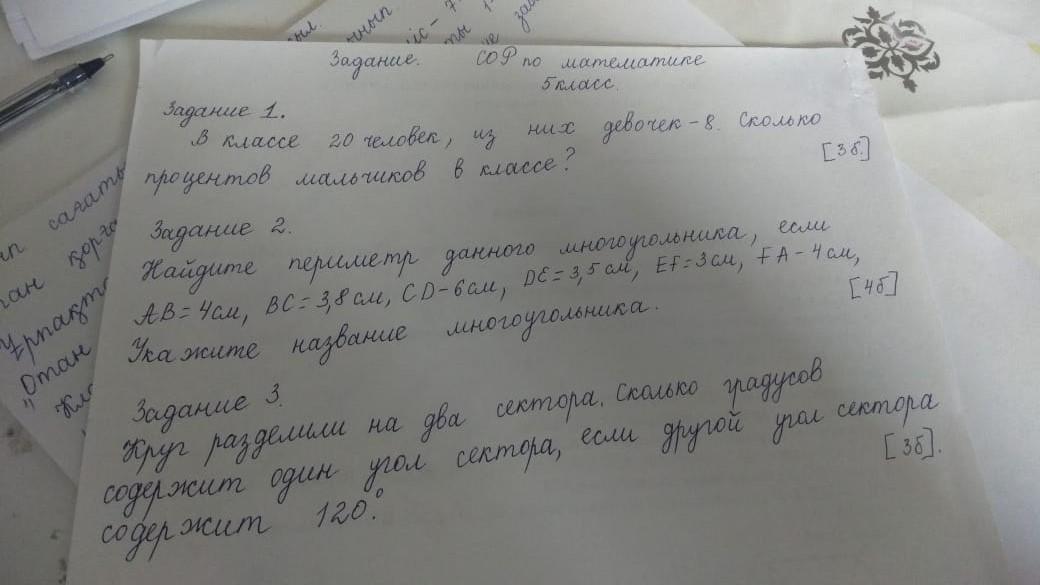 Задание. СОР по математике
5 класс.
Задание 1.
В классе 20 человек, из них девочек - 8. Сколько
процентов мальчиков в классе? [3б.]
Задание 2.
Найдите периметр данного многоугольника, если
AB = 4см, BC = 3,8 см, CD - 6 см, DE = 3,5 см, EF = 3 см, FA - 4 см,
Укажите название многоугольника. [4б]
Задание 3.
Круг разделили на два сектора. Сколько градусов
содержит один угол сектора, если другой угол сектора
содержит 120°. [3б].
сағаты
Отан